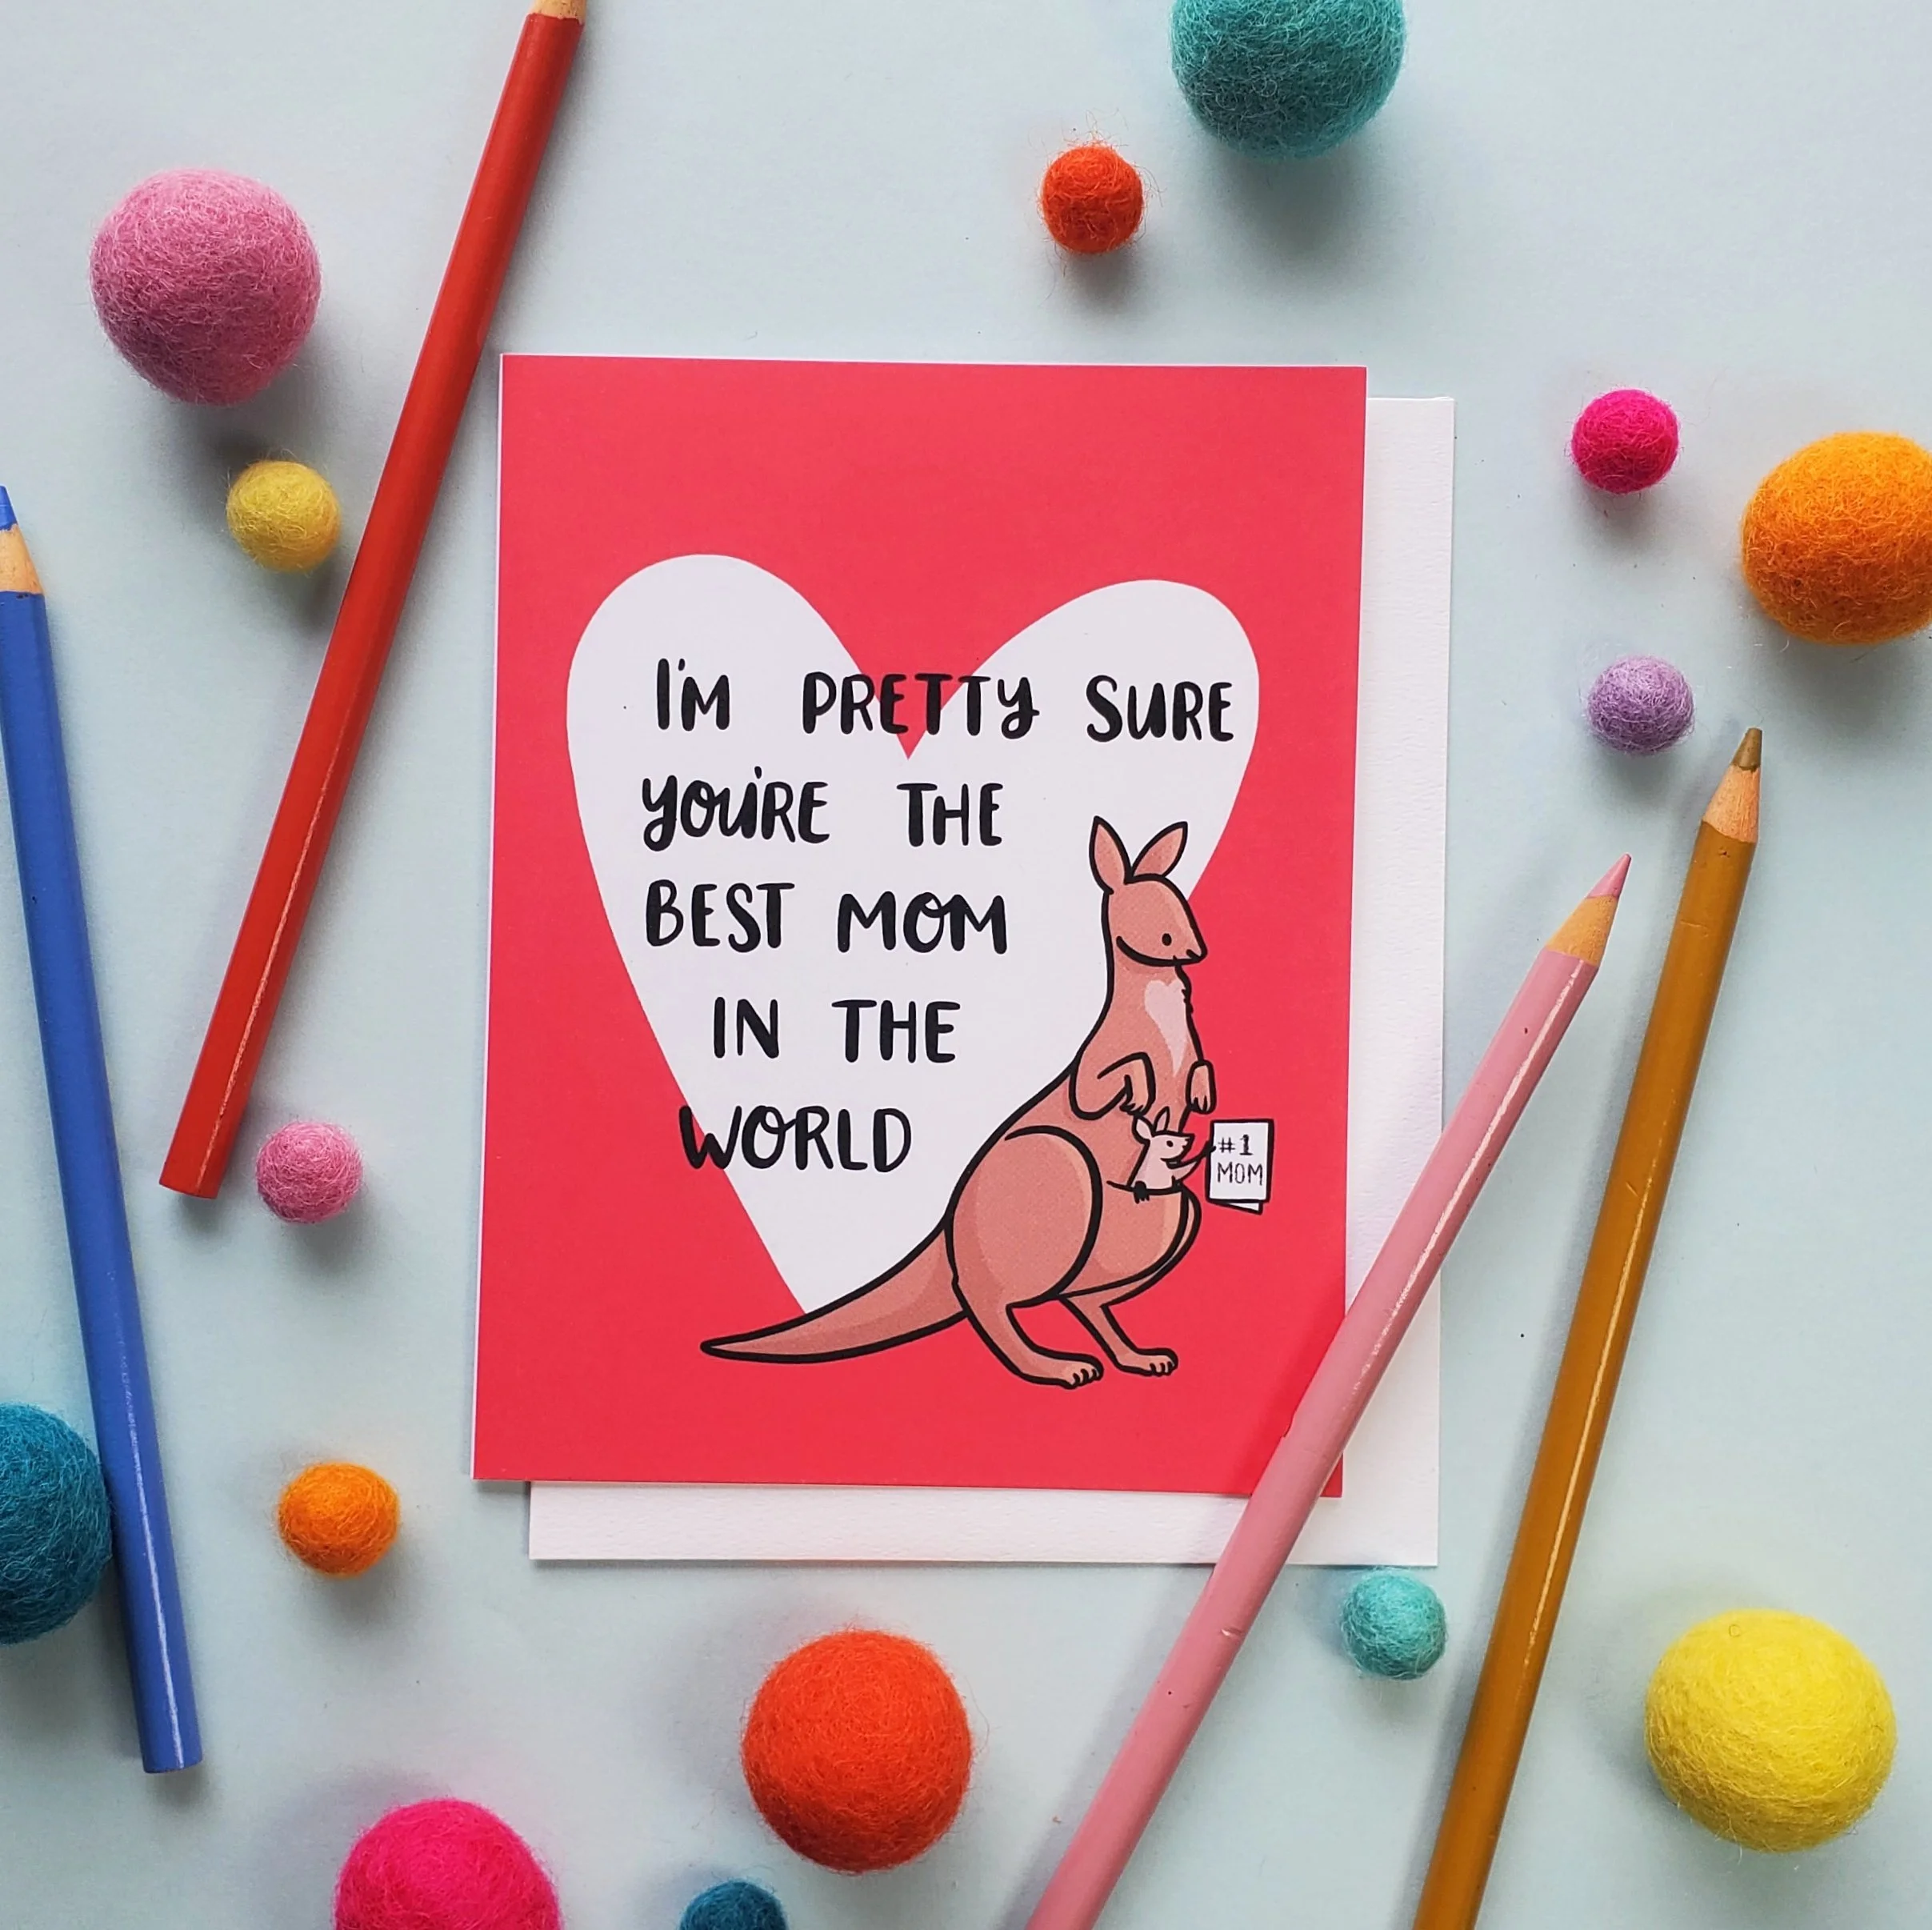 I'M PRETTY SURE
YOU'RE THE
BEST MOM
IN THE
WORLD
#1
MOM